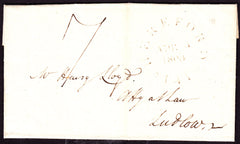 7
Mr Henry Lloyd
Atty at Law
Ludlow